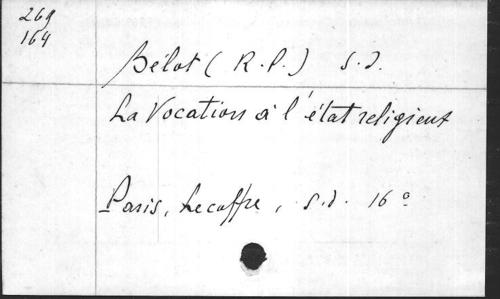 269
164
Bélot (R.P.) S.J.
La Vocation à l'état religieux
Paris, Lecoffre, s.d. 16°